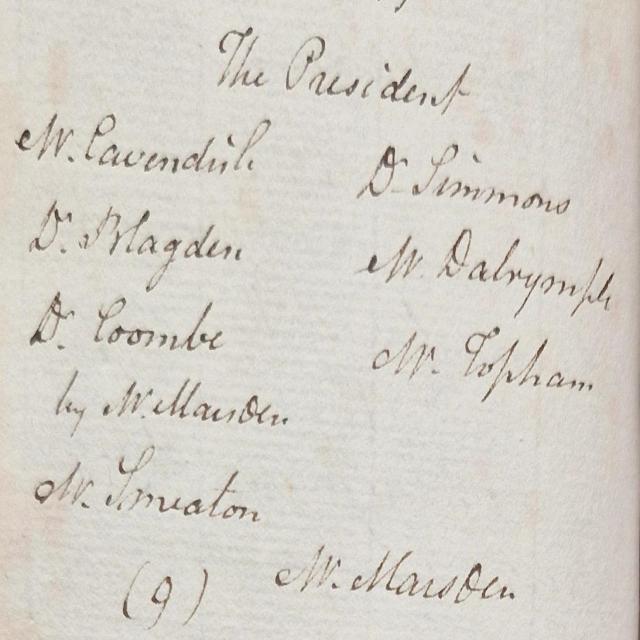 The President
Mr. Cavendish
Dr. Simmons
Dr. Blagden
Mr. Dalrymple
Dr. Coombe
Mr. Topham
by Mr. Marsden
Mr. Smeaton
(9)
Mr. Marsden